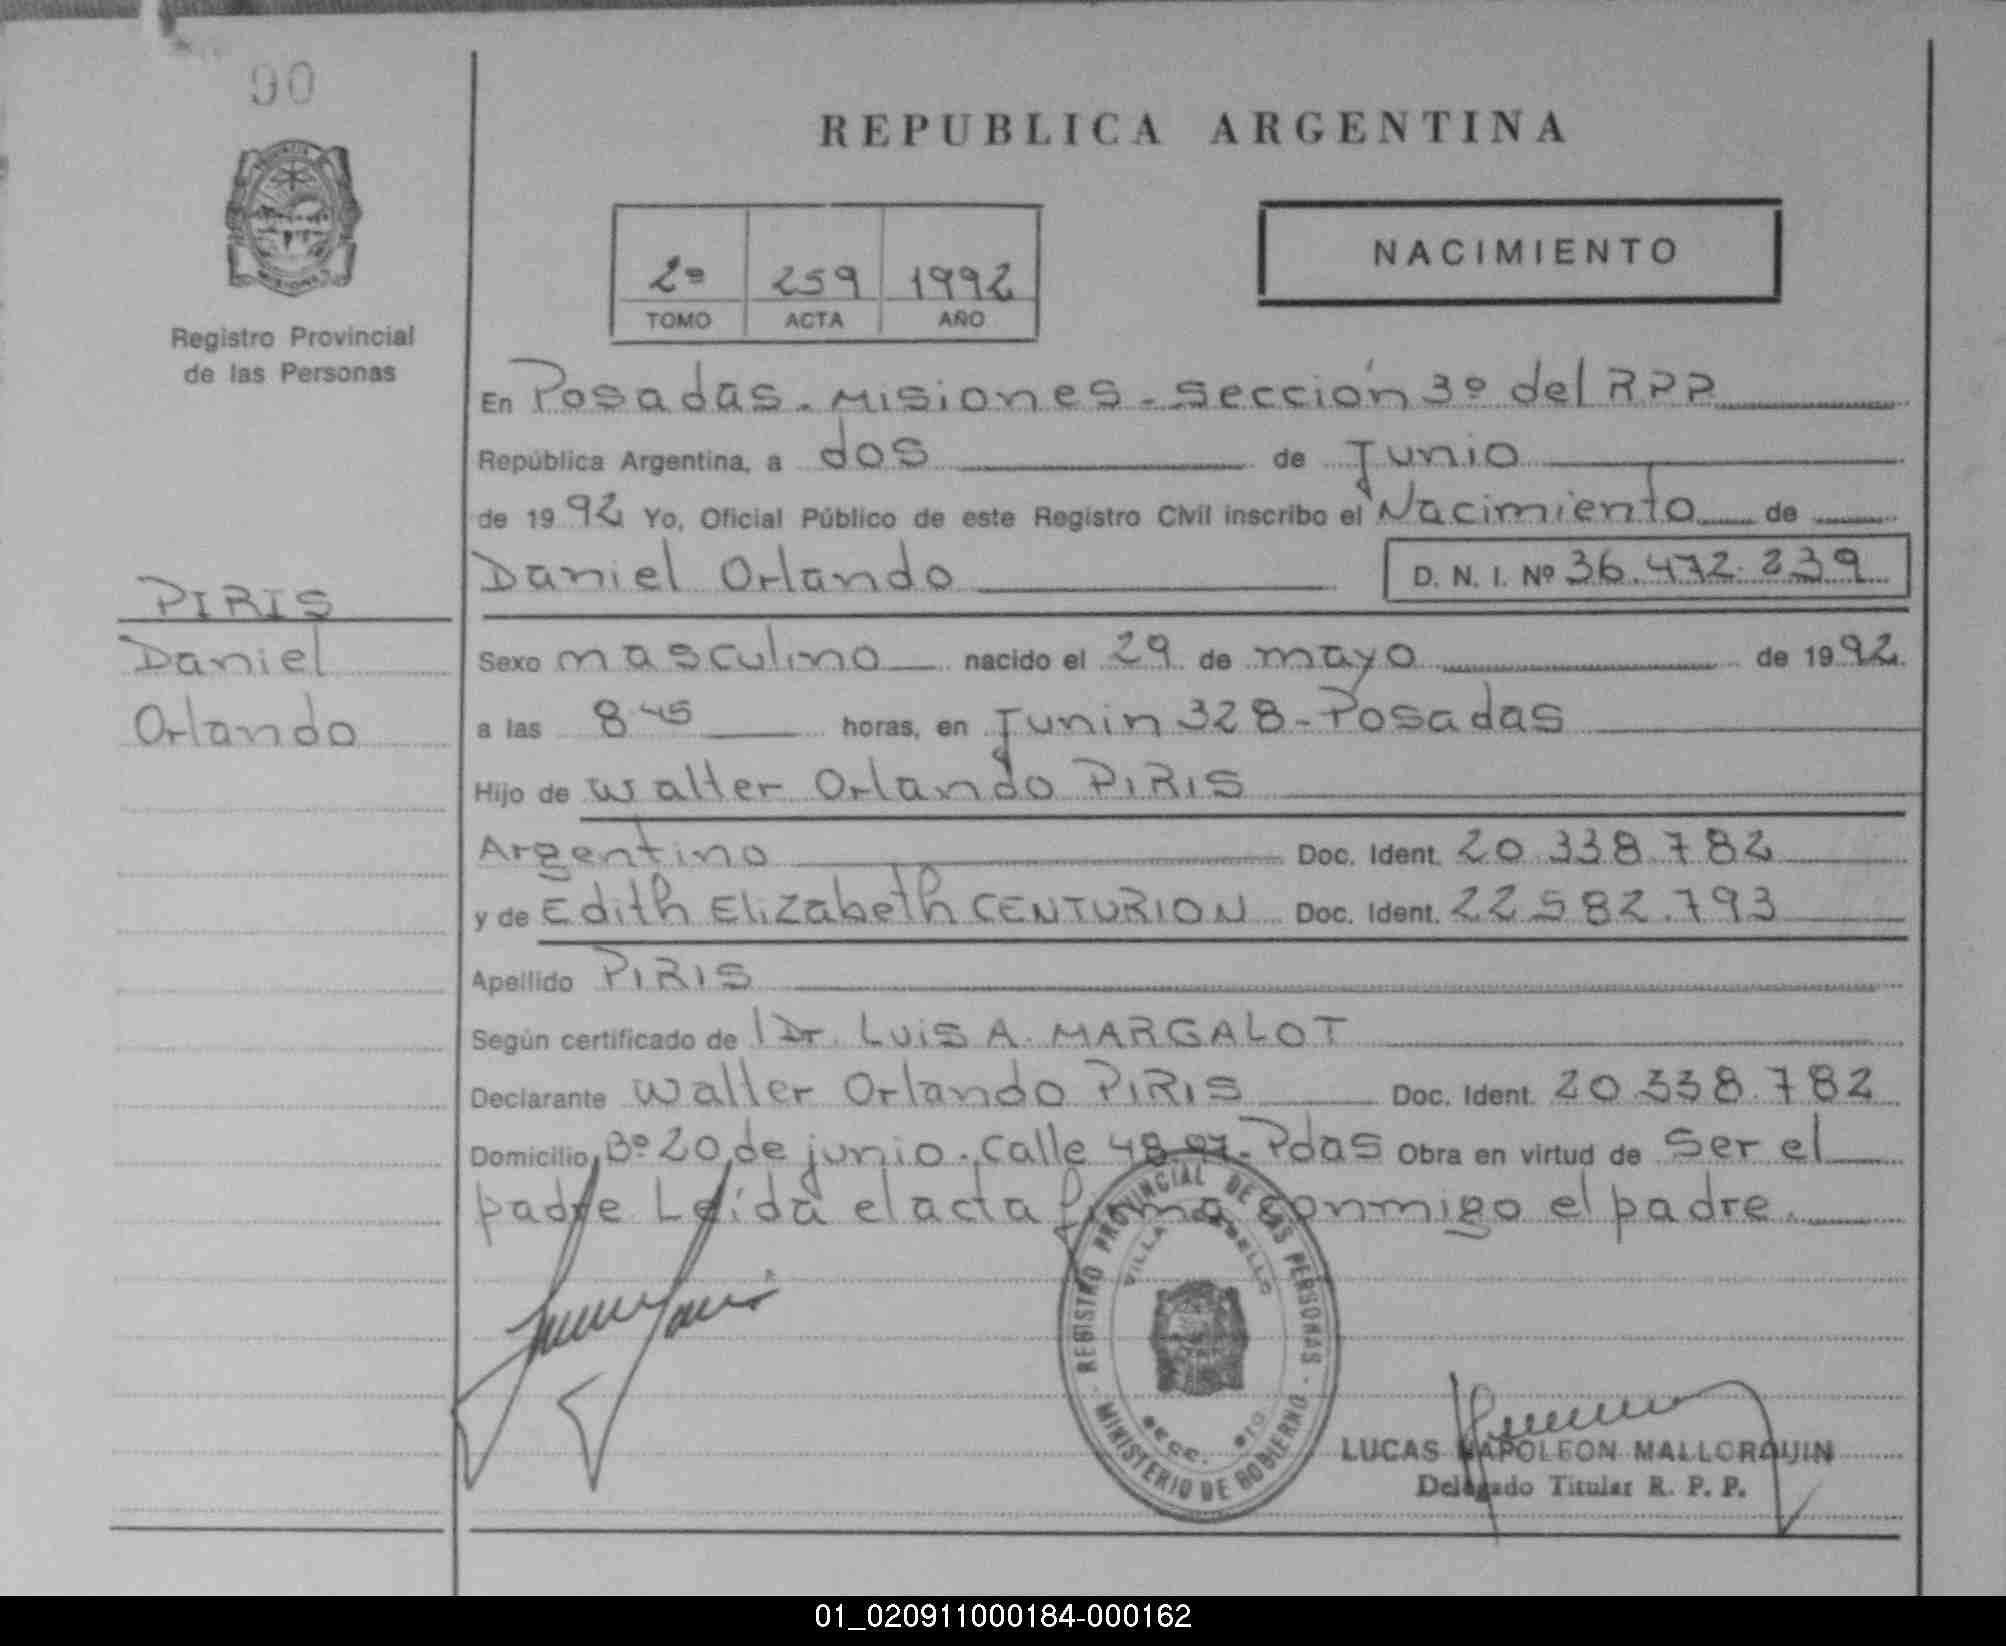 00
REPUBLICA ARGENTINA
2º 259 1992
TOMO ACTA AÑO
NACIMIENTO
Registro Provincial
de las Personas
En Posadas - Misiones - sección 3º del RPP
República Argentina, a dos de Junio
de 1992 Yo, Oficial Público de este Registro Civil inscribo el Nacimiento de
Daniel Orlando D. N. I. Nº 36.472.239
PIRIS
Daniel
Orlando
Sexo masculino nacido el 29 de mayo de 1992
a las 8 45 horas, en Junin 328 - Posadas
Hijo de Walter Orlando PIRIS
Argentino Doc. Ident. 20.338.782
y de Edith Elizabeth CENTURION Doc. Ident. 22.582.793
Apellido PIRIS
Según certificado de l Dr. LUIS A. MARGALOT
Declarante Walter Orlando PIRIS Doc. Ident. 20.338.782
Domicilio Bº 20 de junio. Calle Pdas Obra en virtud de Ser el
padre. Leída el acta firma conmigo el padre.
REGISTRO PROVINCIAL DE LAS PERSONAS
VILLA
MINISTERIO DE GOBIERNO
LUCAS NAPOLEON MALLORQUIN
Delegado Titular R. P. P.
01_020911000184-000162